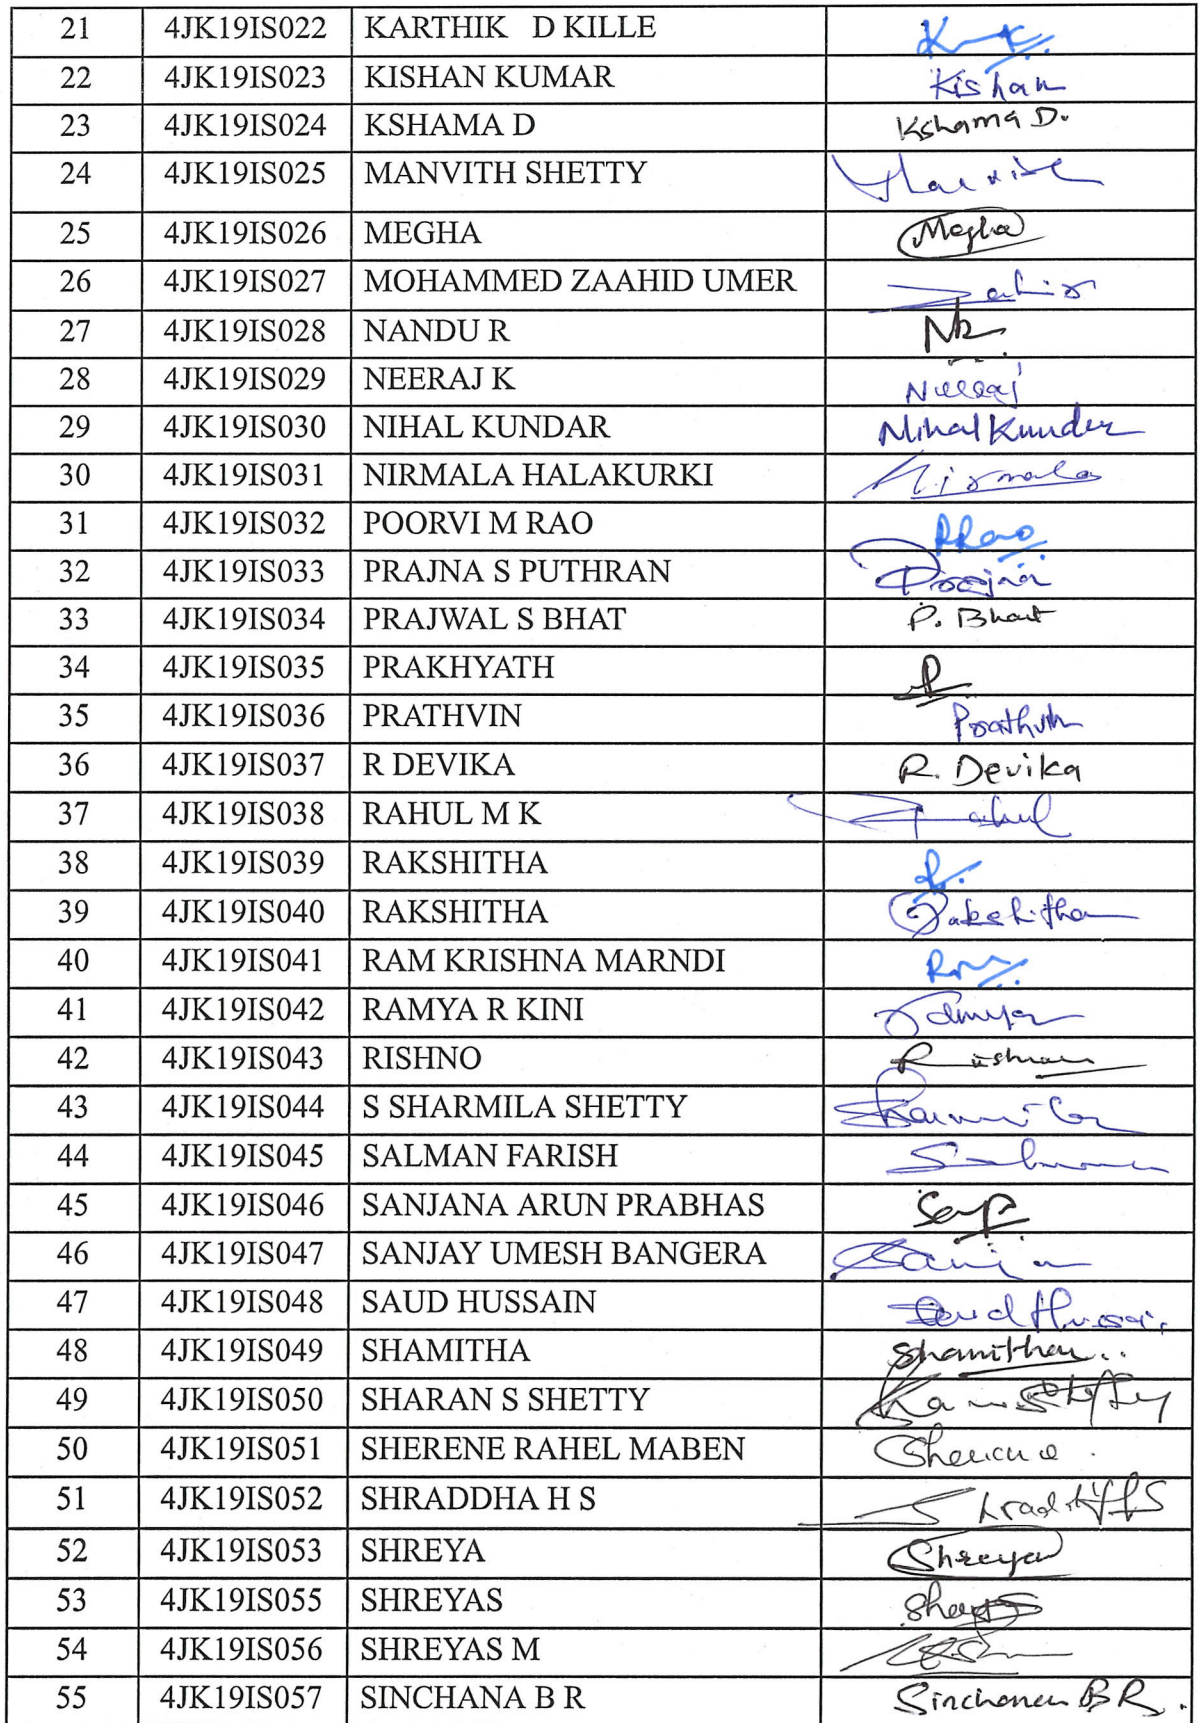 21 4JK19IS022 KARTHIK D KILLE
22 4JK19IS023 KISHAN KUMAR Kishan
23 4JK19IS024 KSHAMA D Kshama D.
24 4JK19IS025 MANVITH SHETTY
25 4JK19IS026 MEGHA Megha
26 4JK19IS027 MOHAMMED ZAAHID UMER
27 4JK19IS028 NANDU R
28 4JK19IS029 NEERAJ K
29 4JK19IS030 NIHAL KUNDAR Nihal Kunder
30 4JK19IS031 NIRMALA HALAKURKI Nirmala
31 4JK19IS032 POORVI M RAO PRao
32 4JK19IS033 PRAJNA S PUTHRAN Prajna
33 4JK19IS034 PRAJWAL S BHAT P. Bhat
34 4JK19IS035 PRAKHYATH
35 4JK19IS036 PRATHVIN
36 4JK19IS037 R DEVIKA R. Devika
37 4JK19IS038 RAHUL M K Rahul
38 4JK19IS039 RAKSHITHA
39 4JK19IS040 RAKSHITHA Rakshitha
40 4JK19IS041 RAM KRISHNA MARNDI
41 4JK19IS042 RAMYA R KINI Ramya
42 4JK19IS043 RISHNO
43 4JK19IS044 S SHARMILA SHETTY
44 4JK19IS045 SALMAN FARISH
45 4JK19IS046 SANJANA ARUN PRABHAS
46 4JK19IS047 SANJAY UMESH BANGERA
47 4JK19IS048 SAUD HUSSAIN
48 4JK19IS049 SHAMITHA Shamitha..
49 4JK19IS050 SHARAN S SHETTY
50 4JK19IS051 SHERENE RAHEL MABEN
51 4JK19IS052 SHRADDHA H S
52 4JK19IS053 SHREYA Shreya
53 4JK19IS055 SHREYAS
54 4JK19IS056 SHREYAS M
55 4JK19IS057 SINCHANA B R Sinchana B R.